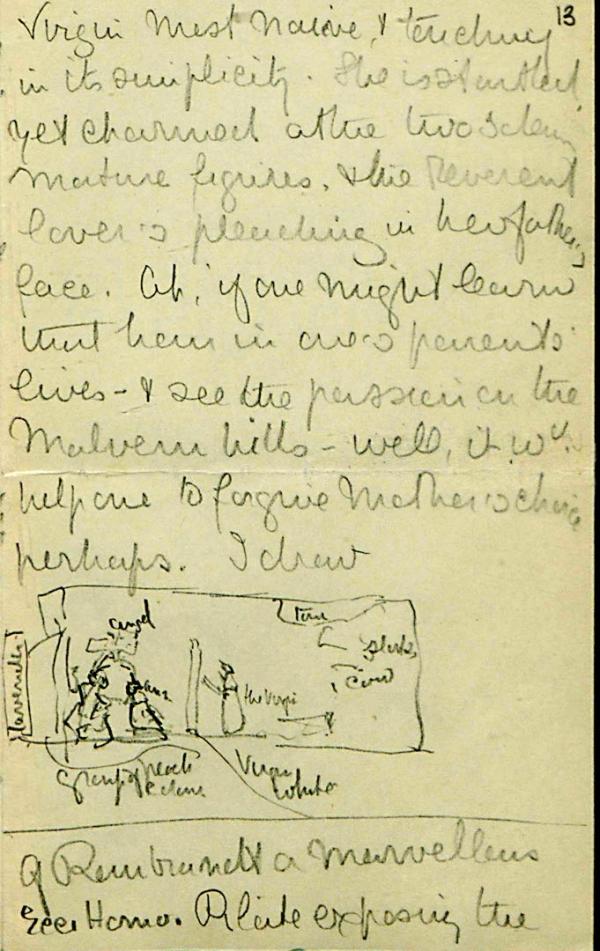 13
Virgin most naive, & touching
in its simplicity. She is startled
yet charmed at the two
mature figures, & the reverent
lover's pleading in her father's
face. Ah, if one might learn
that hour in one's parents'
lives - & see the passion on the
Malvern hills - well, it wd.
help one to forgive Mother's choice
perhaps. I draw
angel
tree
the Virgin
Group
Virgin
white
of Rembrandt a marvellous
Ecce Homo. Pilate exposing the